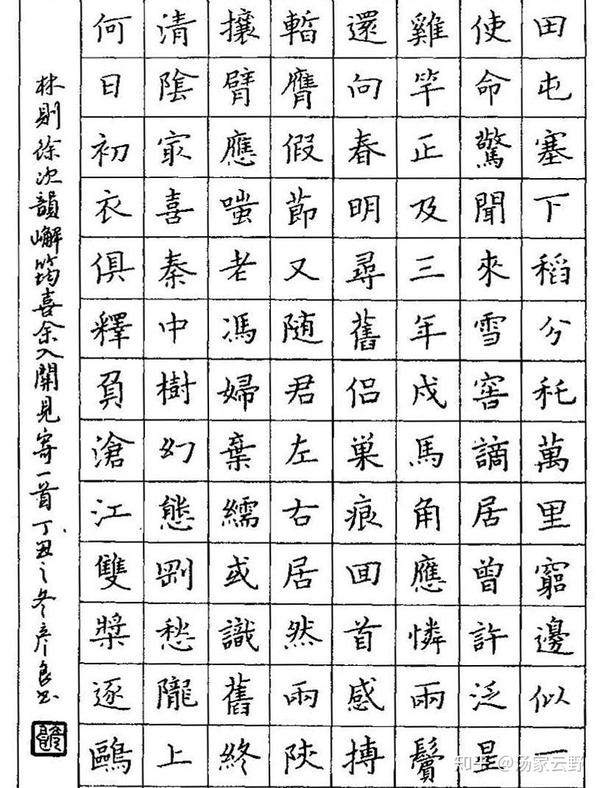 田屯塞下稻分秅萬里窮邊似一
使命驚聞來雪窖謫居曾許泛星
雞竿正及三年戍馬角應憐兩鬢
還向春明尋舊侣巢痕囬首感摶
暫膺假節又随君左右居然兩陝
攘臂應嗤老馮婦棄繻或識舊終
清陰㝡喜秦中樹幻態剛愁隴上
何日初衣俱釋負滄江雙槳逐鷗
林則徐次韻嶰筠喜余入關見寄一首丁丑之冬彦良書
知乎 @汤家云野